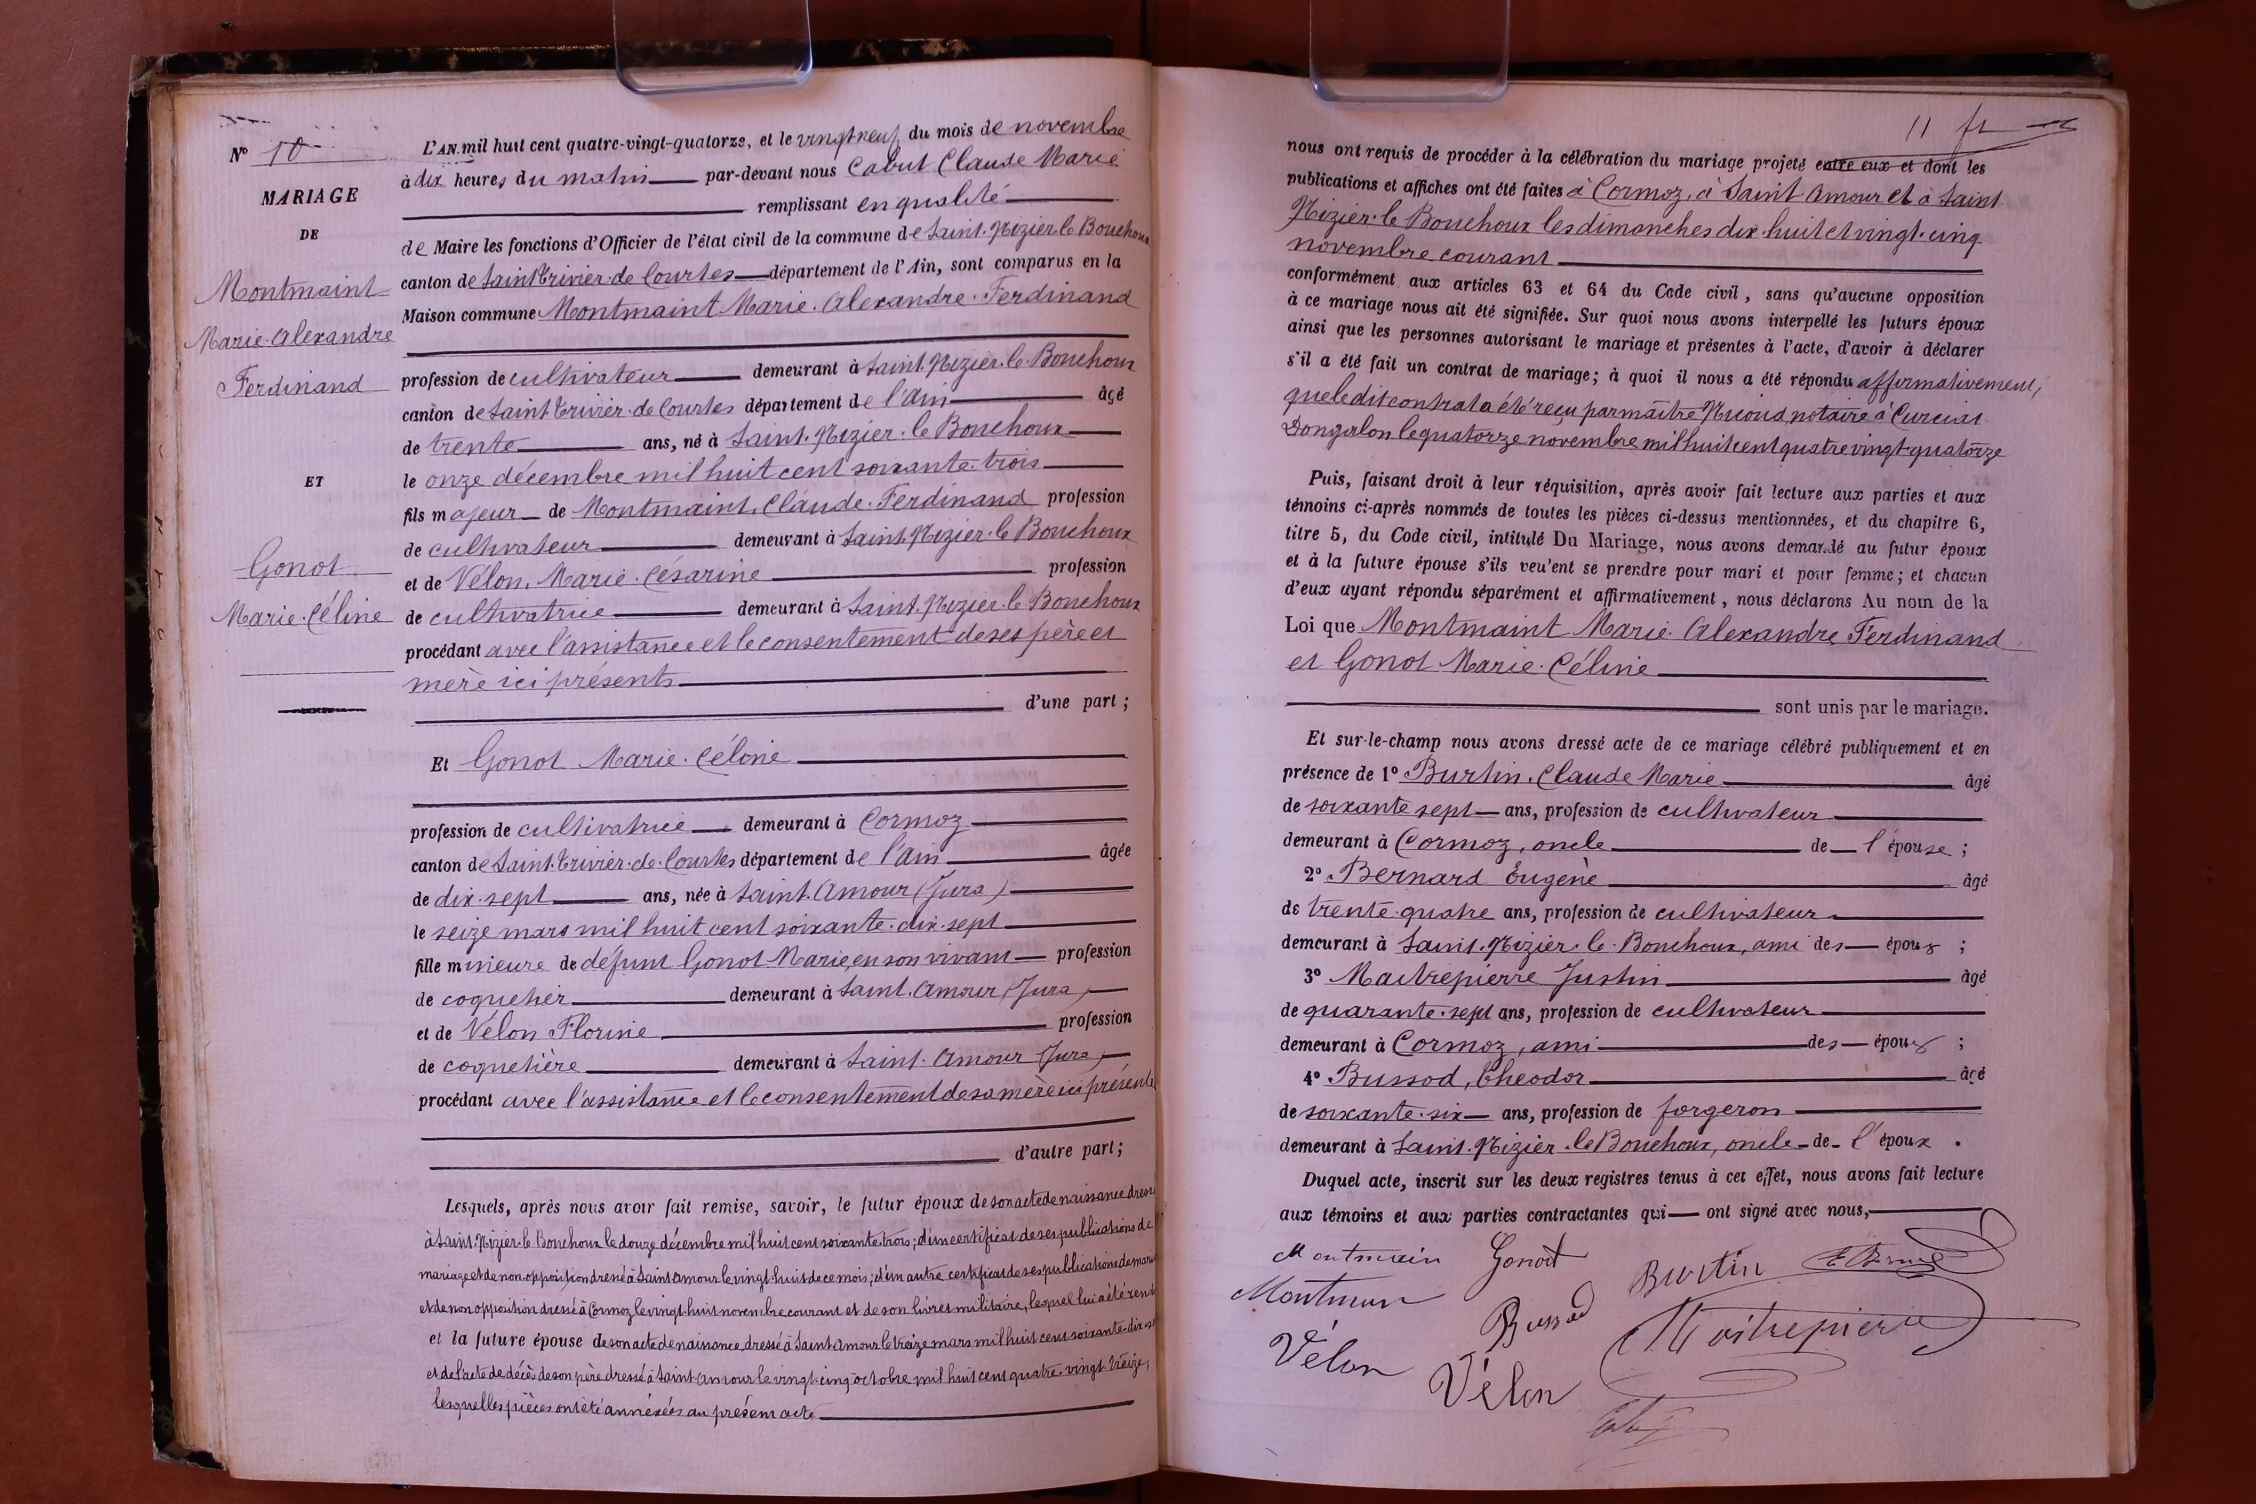 N° 10
MARIAGE
DE
Montmaint
Marie Alexandre
Ferdinand
ET
Gonot
Marie Céline
L'AN mil huit cent quatre-vingt-quatorze, et le vingt neuf du mois de novembre
à dix heures du matin par-devant nous Cabut Claude Marie
remplissant en qualité
de Maire les fonctions d'Officier de l'état civil de la commune de Saint-Nizier-le Bouchoux
canton de Saint Trivier-de Courtes département de l'Ain, sont comparus en la
Maison commune Montmaint Marie Alexandre Ferdinand
profession de cultivateur demeurant à Saint-Nizier-le-Bouchoux
canton de Saint Trivier-de Courtes département de l'Ain âgé
de trente ans, né à Saint-Nizier-le Bouchoux
le onze décembre mil huit cent soixante-trois
fils majeur de Montmaint, Claude Ferdinand profession
de cultivateur demeurant à Saint-Nizier-le Bouchoux
et de Vélon, Marie Césarine profession
de cultivatrice demeurant à Saint-Nizier-le Bouchoux
procédant avec l'assistance et le consentement de ses père et
mère ici présents
d'une part ;
Et Gonot Marie Céline
profession de cultivatrice demeurant à Cormoz
canton de Saint-Trivier-de-Courtes département de l'Ain âgée
de dix-sept ans, née à Saint-Amour (Jura)
le seize mars mil huit cent soixante-dix-sept
fille mineure de défunt Gonot Marie, en son vivant profession
de coquetier demeurant à Saint-Amour (Jura)
et de Vélon Florine profession
de coquetière demeurant à Saint-Amour (Jura)
procédant avec l'assistance et le consentement de sa mère ici présente
d'autre part ;
Lesquels, après nous avoir fait remise, savoir, le futur époux de son acte de naissance dressé
à Saint-Nizier-le Bouchoux le douze décembre mil huit cent soixante trois ; d'un certificat de ses publications de
mariage et de non opposition dressé à Saint Amour le vingt-huit de ce mois ; d'un autre certificat de ses publications de
et de non opposition dressé à Cormoz le vingt-huit novembre courant et de son livret militaire, lequel lui a été
et la future épouse de son acte de naissance dressé à Saint Amour le treize mars mil huit cent soixante-dix
et de l'acte de décès de son père dressé à Saint-Amour le vingt-cinq octobre mil huit cent quatre-vingt-treize,
lesquelles pièces ont été annexées au présent acte
11
nous ont requis de procéder à la célébration du mariage projeté entre eux et dont les
publications et affiches ont été faites à Cormoz, à Saint Amour et à Saint
Nizier-le Bouchoux les dimanches dix-huit et vingt-cinq
novembre courant
conformément aux articles 63 et 64 du Code civil, sans qu'aucune opposition
à ce mariage nous ait été signifiée. Sur quoi nous avons interpellé les futurs époux
ainsi que les personnes autorisant le mariage et présentes à l'acte, d'avoir à déclarer
s'il a été fait un contrat de mariage ; à quoi il nous a été répondu affirmativement,
que le dit contrat a été reçu par maître notaire à Curciat
Dongalon le quatorze novembre mil huit cent quatre vingt-quatorze
Puis, faisant droit à leur réquisition, après avoir fait lecture aux parties et aux
témoins ci-après nommés de toutes les pièces ci-dessus mentionnées, et du chapitre 6,
titre 5, du Code civil, intitulé Du Mariage, nous avons demandé au futur époux
et à la future épouse s'ils veulent se prendre pour mari et pour femme ; et chacun
d'eux ayant répondu séparément et affirmativement, nous déclarons Au nom de la
Loi que Montmaint Marie Alexandre Ferdinand
et Gonot Marie Céline
sont unis par le mariage.
Et sur-le-champ nous avons dressé acte de ce mariage célébré publiquement et en
présence de 1° Burtin, Claude Marie âgé
de soixante sept ans, profession de cultivateur
demeurant à Cormoz, oncle de l'épouse ;
2° Bernard Eugène âgé
de trente-quatre ans, profession de cultivateur
demeurant à Saint-Nizier-le-Bouchoux, ami des époux ;
3° Maitrepierre Justin âgé
de quarante-sept ans, profession de cultivateur
demeurant à Cormoz, ami des époux ;
4° Bussod, Theodor âgé
de soixante-six ans, profession de forgeron
demeurant à Saint-Nizier-le Bouchoux, oncle de l'époux.
Duquel acte, inscrit sur les deux registres tenus à cet effet, nous avons fait lecture
aux témoins et aux parties contractantes qui ont signé avec nous,
Montmain Gonot Burtin
Bussod Maitrepierre
Vélon Vélon